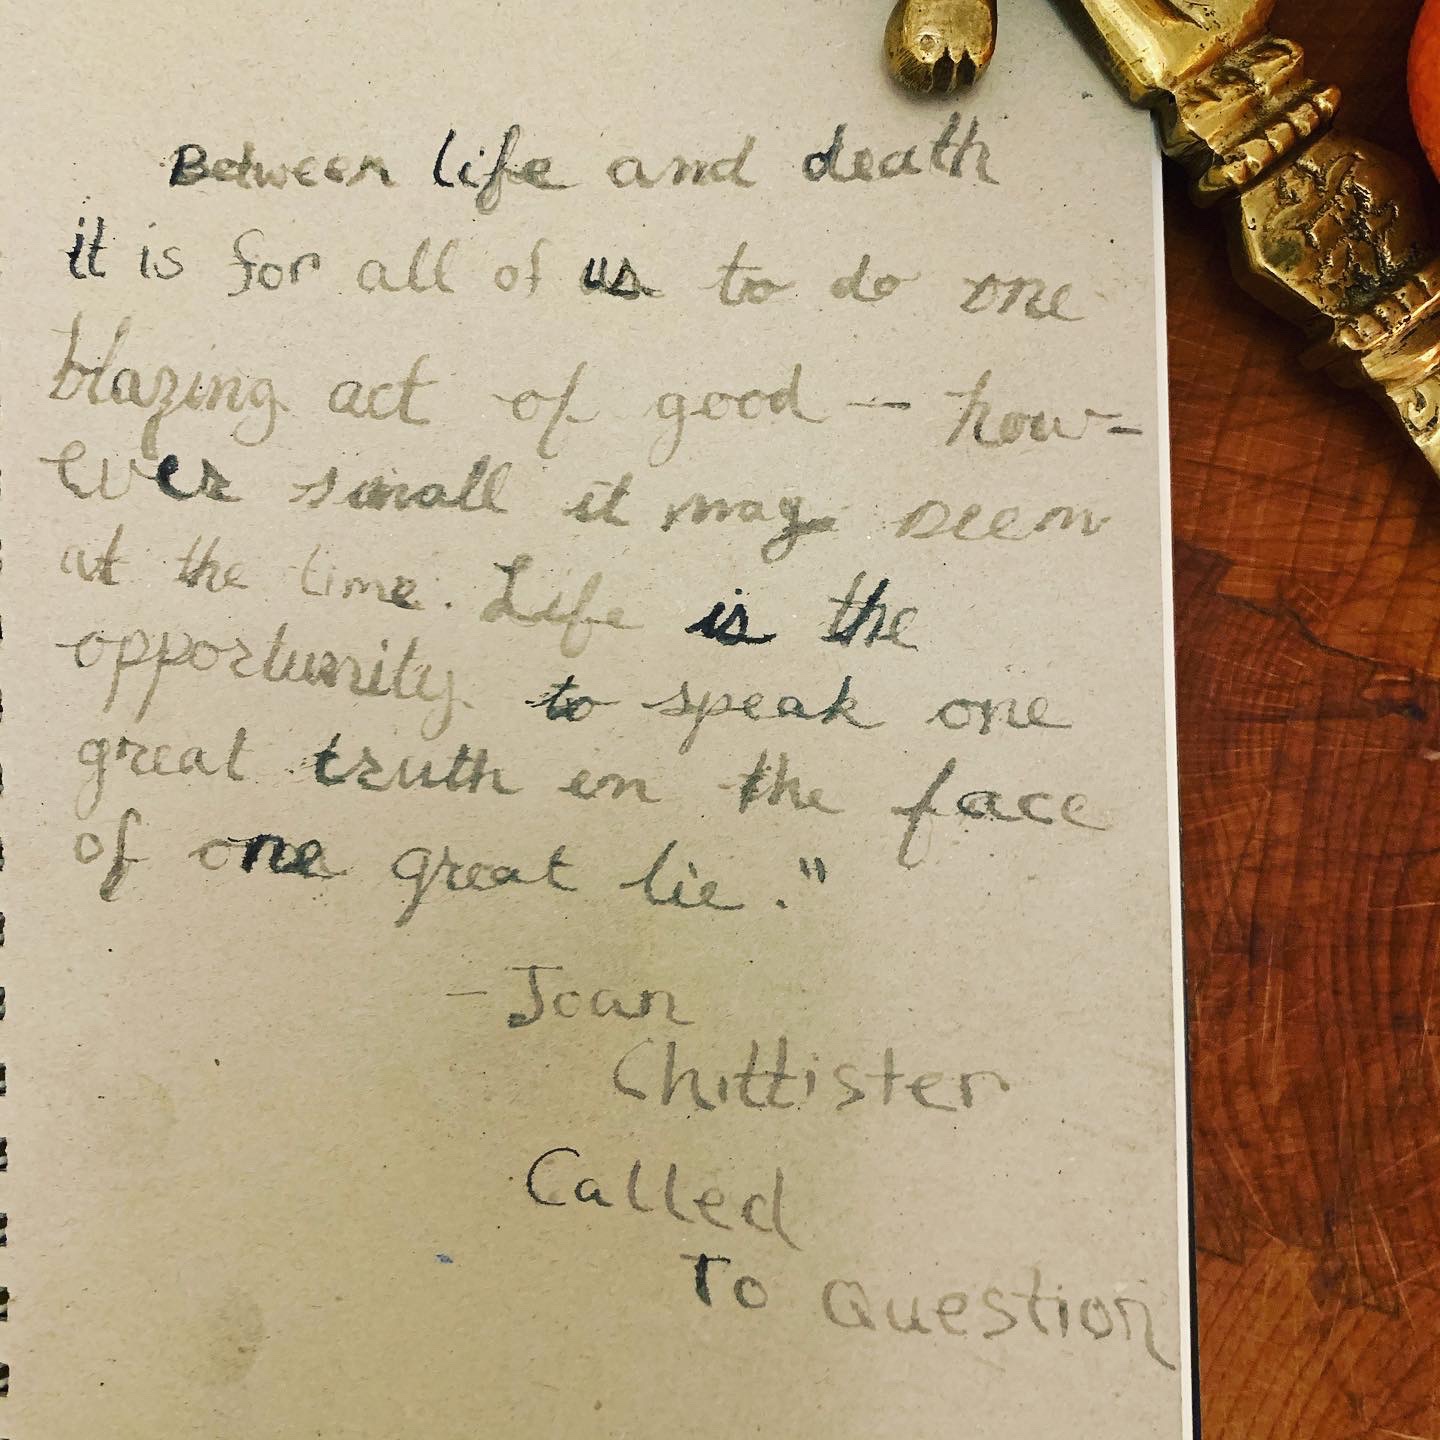 Between life and death
it is for all of us to do one
blazing act of good — how-
ever small it may seem
at the time. Life is the
opportunity to speak one
great truth in the face
of one great lie."
- Joan
Chittister
Called
To Question